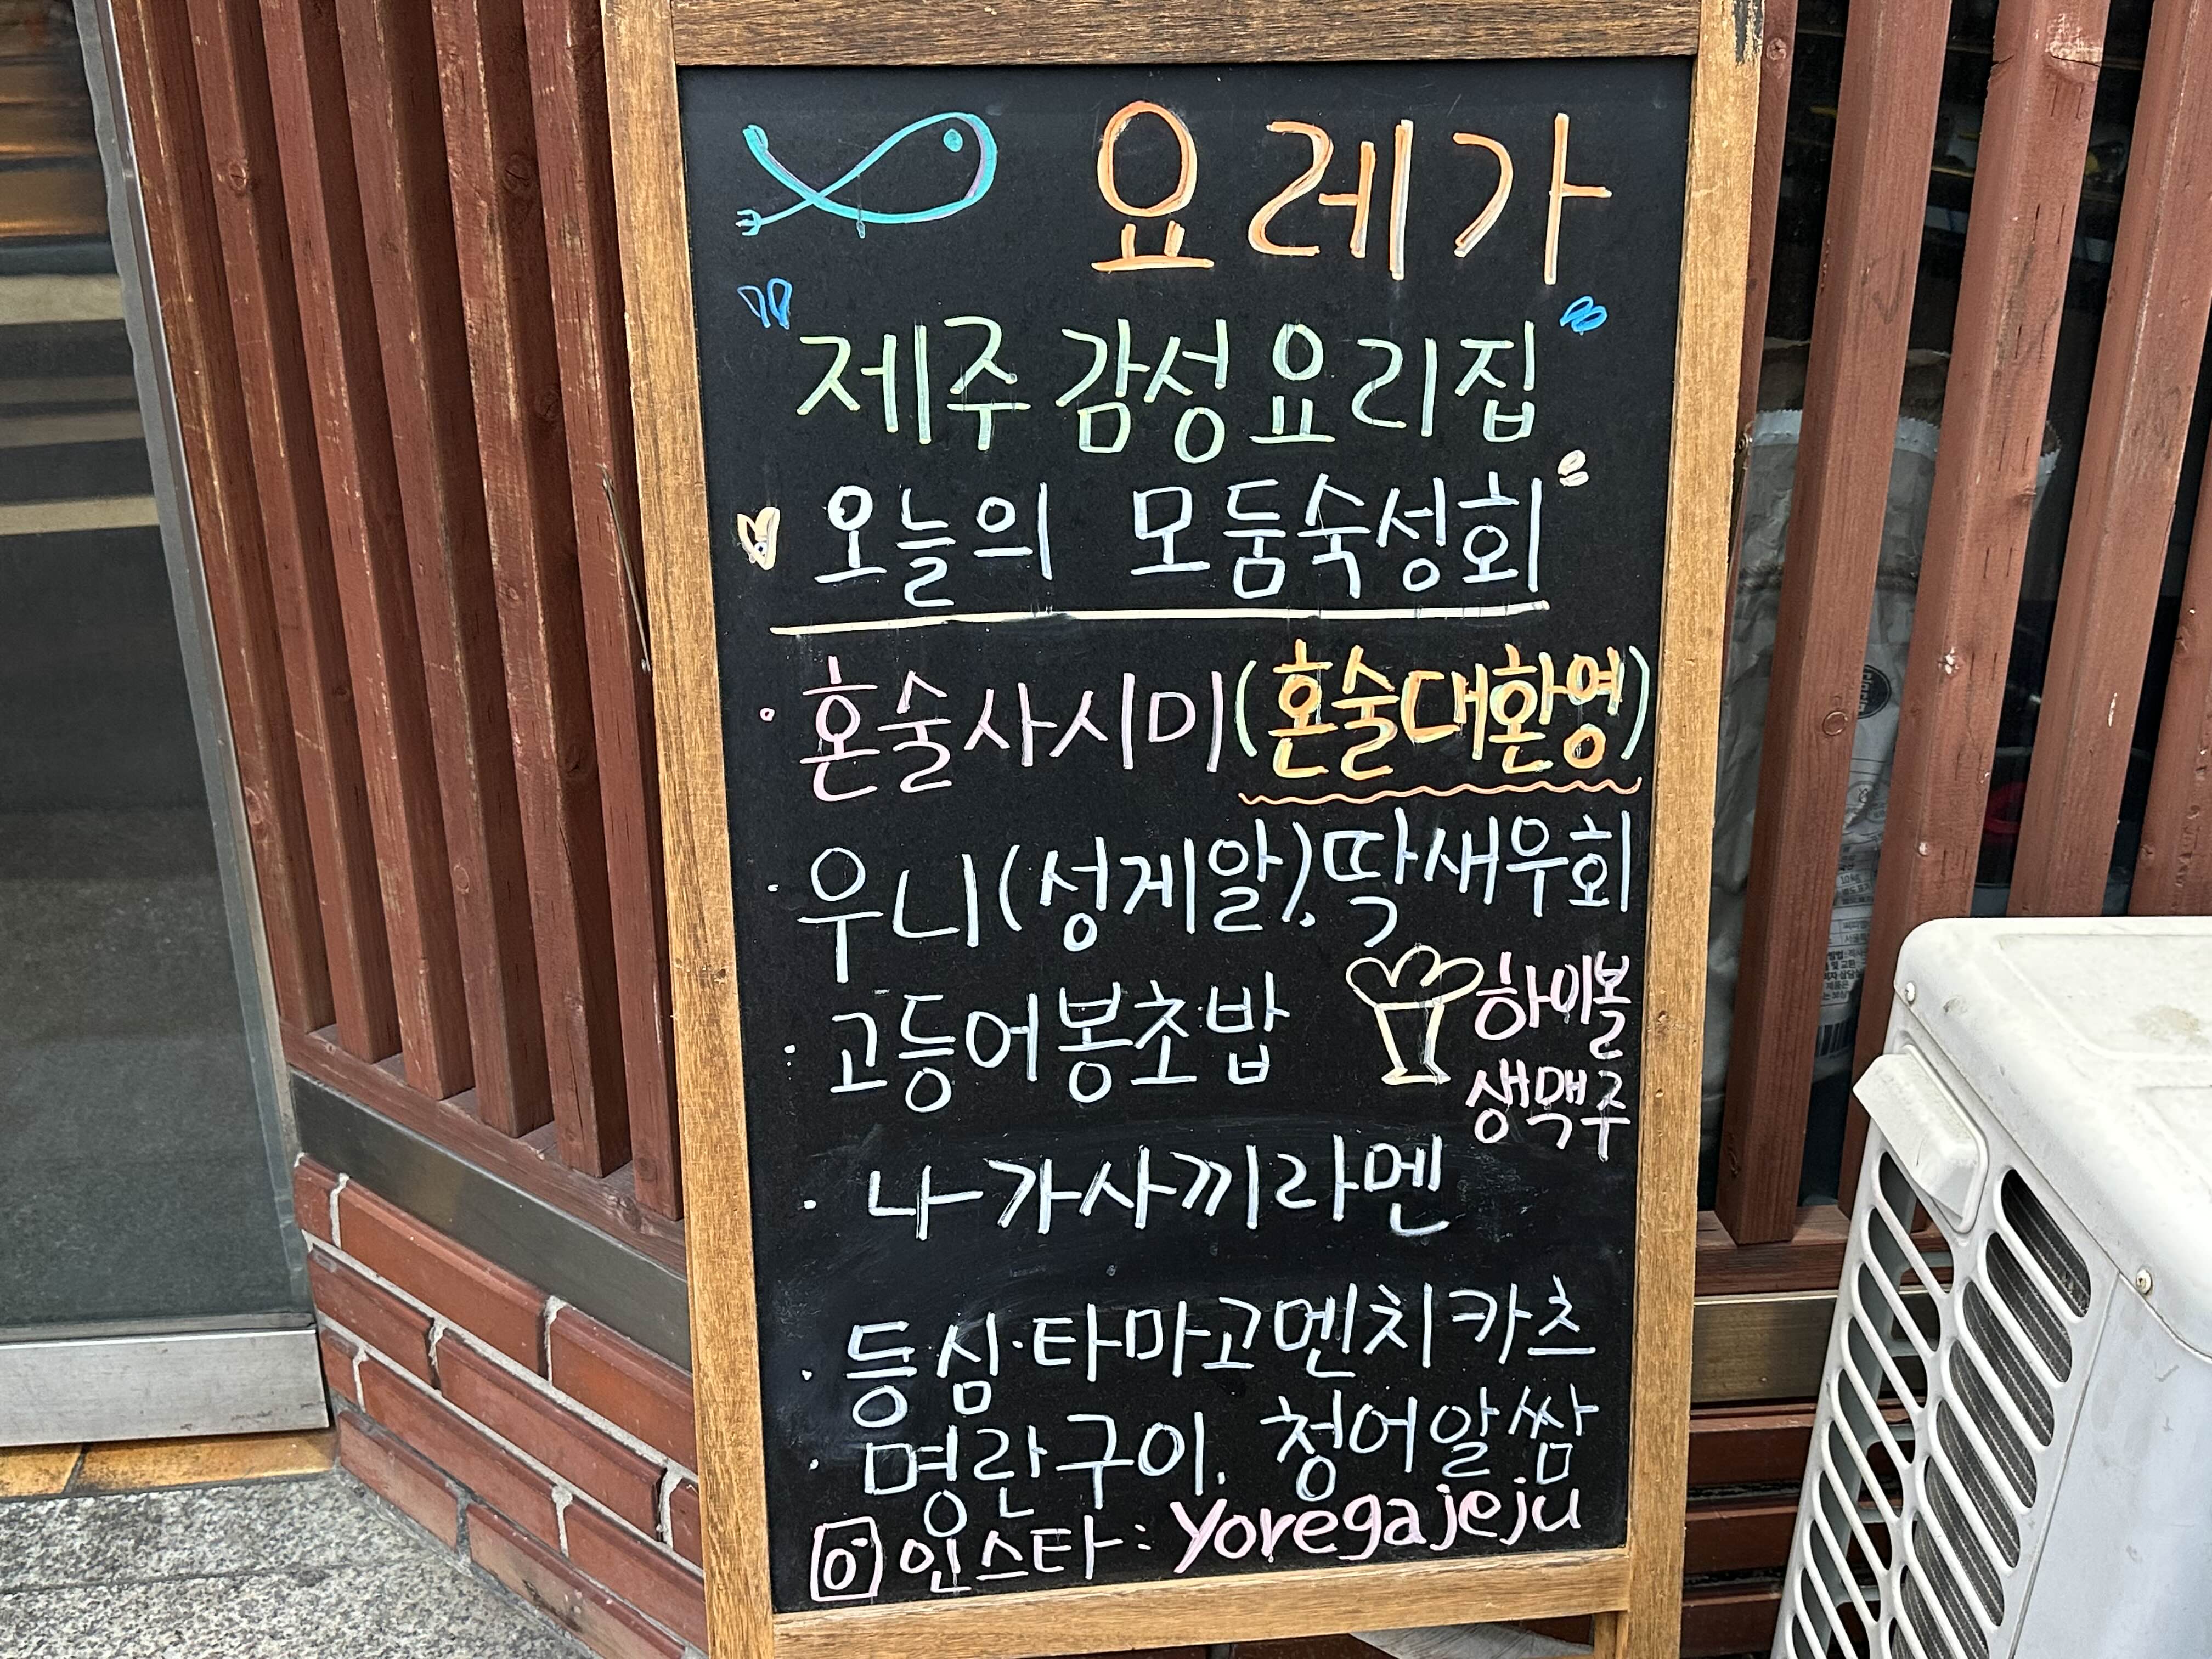 요레가
제주 감성 요리집
오늘의 모둠숙성회
· 혼술사시미 (혼술대환영)
· 우니(성게알). 딱새우회
· 고등어봉초밥
하이볼
생맥주
· 나가사끼라멘
· 등심·타마고멘치카츠
· 명란구이. 청어알쌈
인스타: Yoregajeju